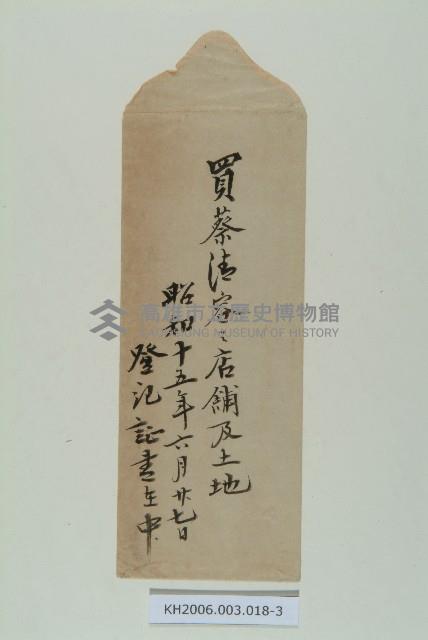 買蔡清賓之店舖及土地
昭和十五年六月廿七日
登記証書在中
高雄市立歷史博物館
KAOHSIUNG MUSEUM OF HISTORY
KH2006.003.018-3